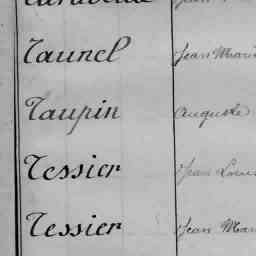 Taunel Jean Marie
Taupin Auguste
Tessier Jean Louis
Tessier Jean Mar